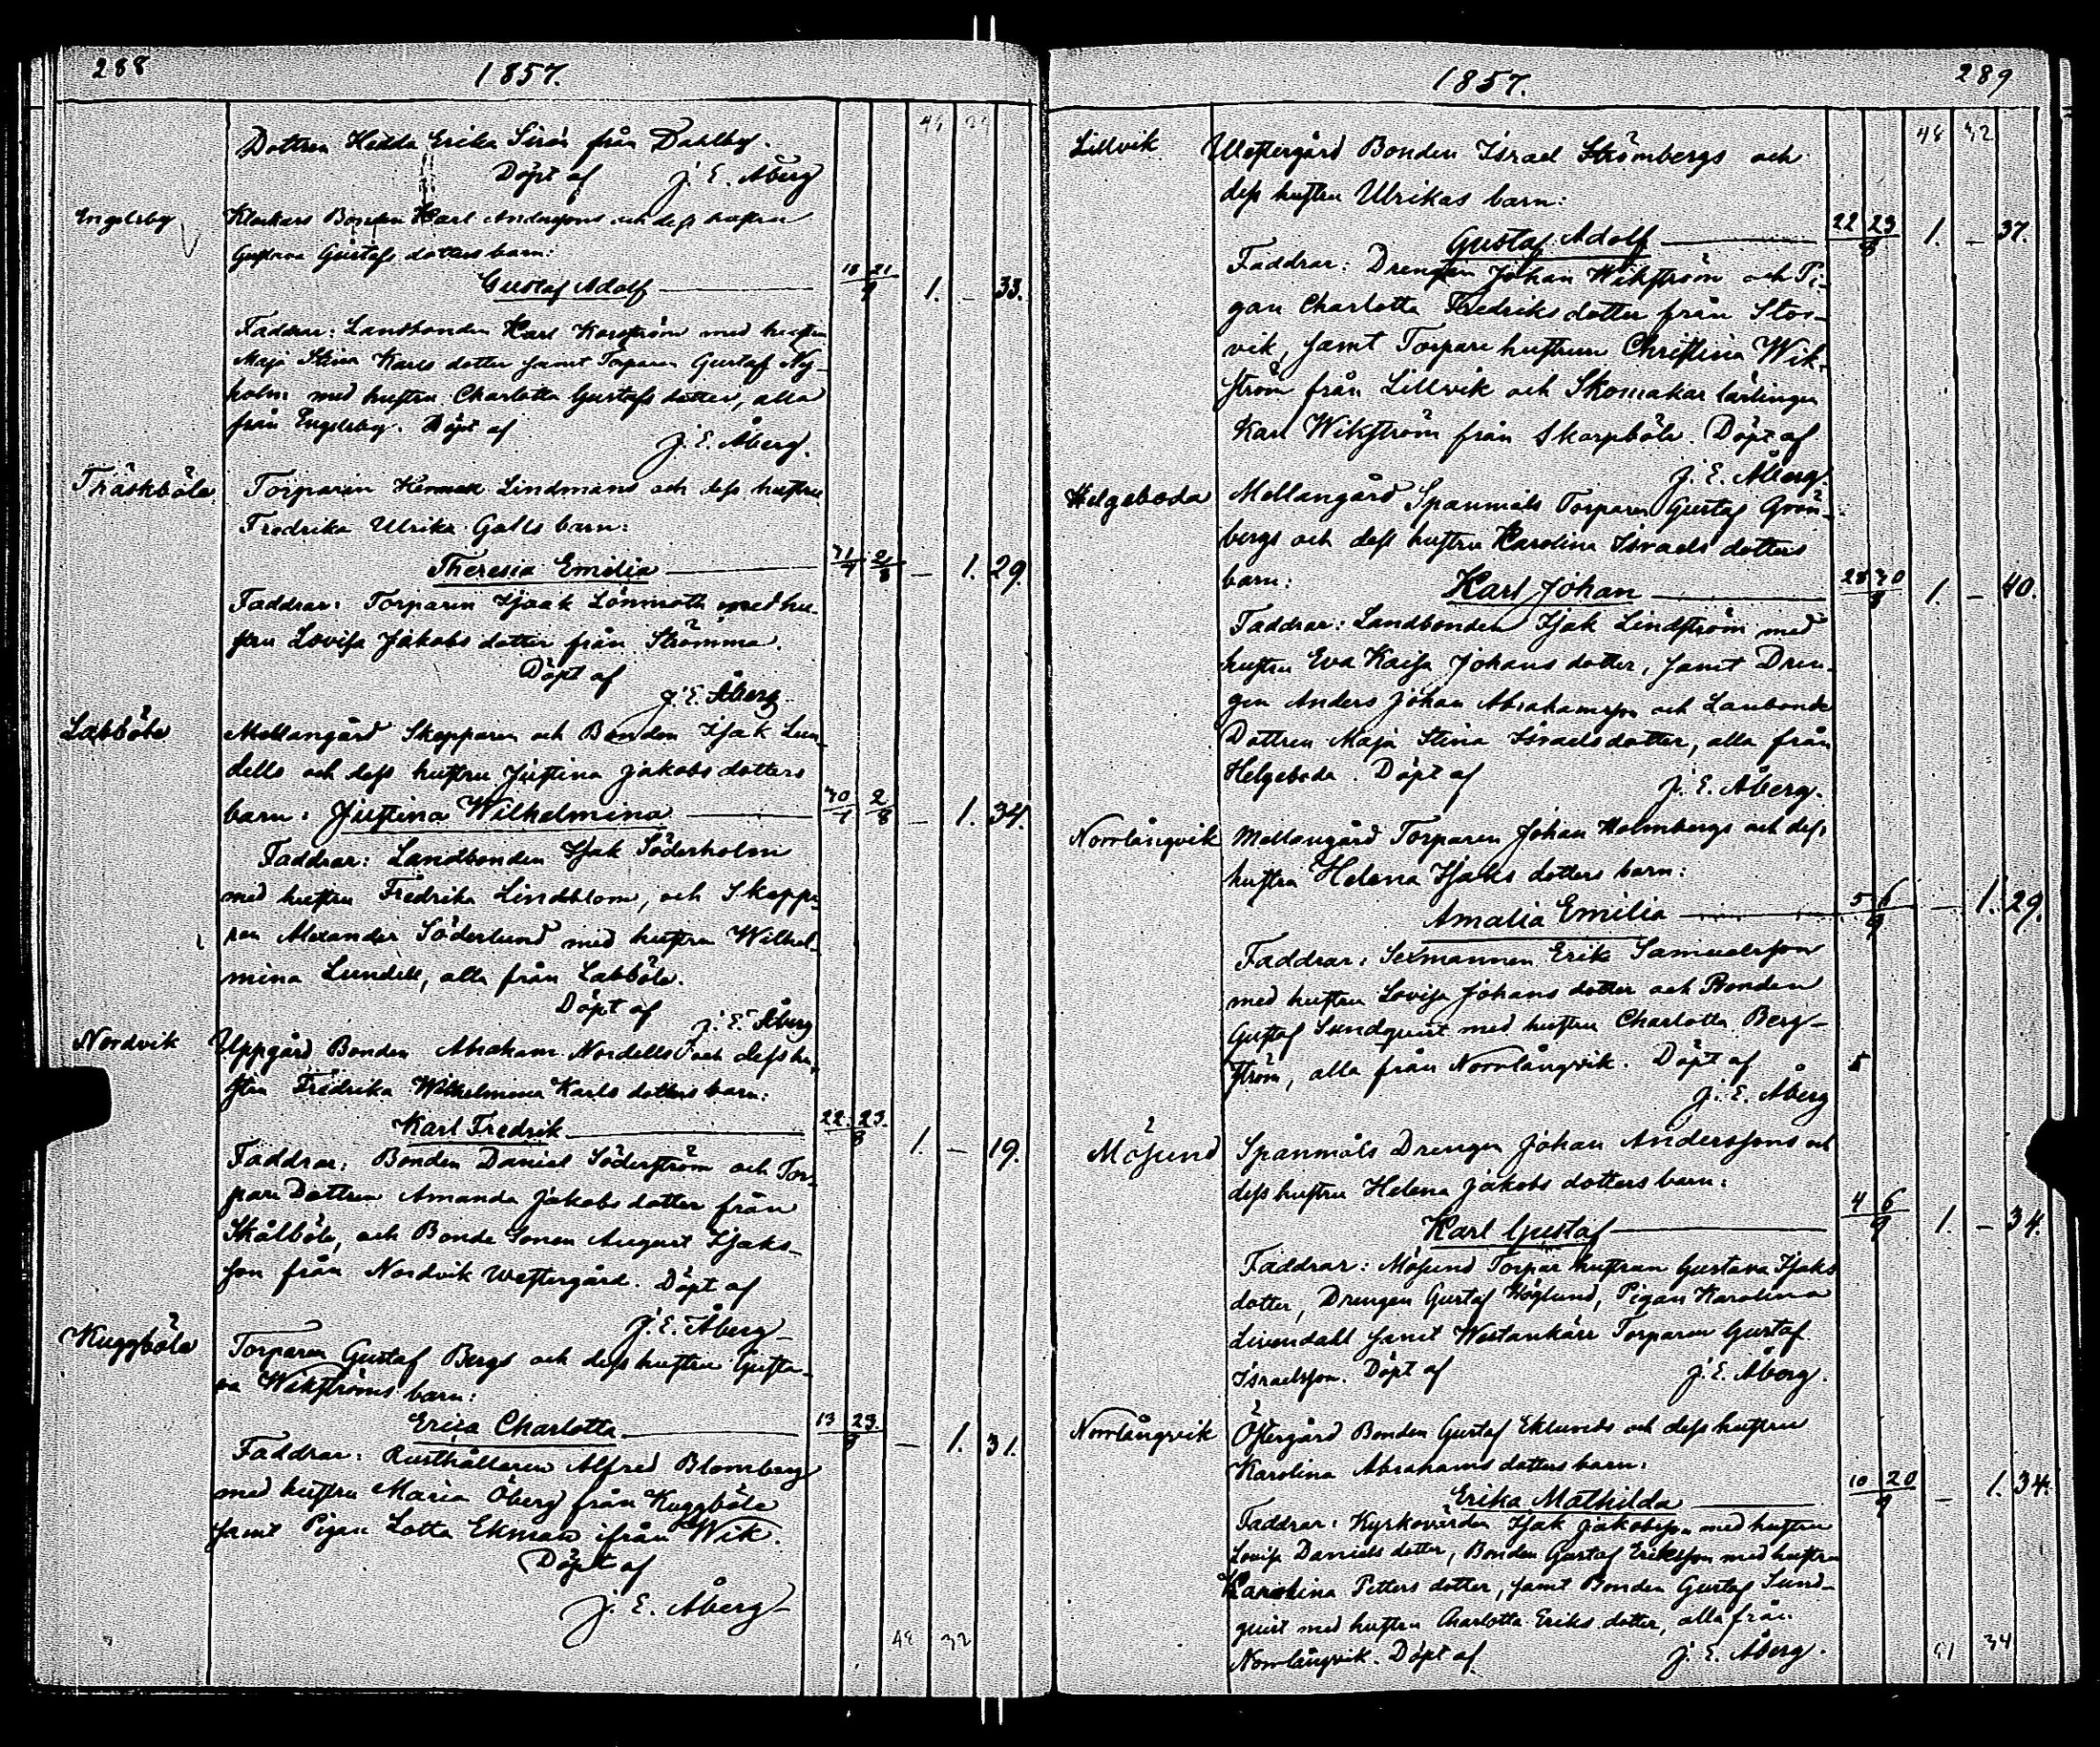 288
1857.
46 29
Dottren Hedda Erika Sirén från Dahlby.
Döpt af J. E. Åberg
Engelsby Klockars Bonden Karl Anderssons och dess hustru
Gustava Gustafs dotters barn:
Gustaf Adolf 18 21/7 1. – 33.
Faddrar: Landbonden Karl Korsström med hustru
Maja Stina Karls dotter samt Torparen Gustaf Ny-
holm med hustru Charlotta Gustafs dotter, alla
från Engelsby. Döpt af
J. E. Åberg.
Träskböle Torparen Herman Lindmans och dess hustru
Fredrika Ulrika Galls barn:
Theresia Emilia 31/7 2/8 – 1. 29.
Faddrar: Torparen Isaak Lönnroth med hu-
stru Lovisa Jakobs dotter från Strömma.
Döpt af
J. E. Åberg
Labböle Mellangård Skepparen och Bonden Isak Lun-
dells och dess hustru Justina Jakobs dotters
barn: Justina Wilhelmina 30/7 2/8 – 1. 34.
Faddrar: Landbonden Isak Söderholm
med hustru Fredrika Lindblom, och Skeppa-
ren Alexander Söderlund med hustru Wilhel-
mina Lundell, alla från Labböle.
Döpt af
J. E. Åberg
Nordvik Uppgård Bonden Abraham Nordells och dess hu-
stru Fredrika Wilhelmina Karls dotters barn:
Karl Fredrik 22. 23./8 1. – 19.
Faddrar: Bonden Daniel Söderström och Tor-
pare Dottren Amanda Jakobs dotter från
Skålböle, och Bonde Sonen August Isaks-
son från Nordvik Westergård. Döpt af
J. E. Åberg
Kuggböle Torparen Gustaf Bergs och dess hustru Gusta-
va Wikströms barn:
Erica Charlotta 13 23./8 – 1. 31.
Faddrar: Rusthållaren Alfred Blomberg
med hustru Maria Öberg från Kuggböle
samt Pigan Lotta Ekman ifrån Wik.
Döpt af
J. E. Åberg
48 32
1857.
289
48 32
Lillvik Westergård Bonden Israel Strömbergs och
dess hustru Ulrikas barn:
Gustaf Adolf 22 23/8 1. – 37.
Faddrar: Drengen Johan Wikström och Pi-
gan Charlotta Fredriks dotter från Stor-
vik, samt Torpare hustrun Christina Wik-
ström från Lillvik och Skomakar lärlingen
Karl Wikström från Skarpböle. Döpt af
J. E. Åberg.
Helgeboda Mellangård Spanmåls Torparen Gustaf Grön-
bergs och dess hustru Karolina Israels dotters
barn: Karl Johan 28 30/8 1. – 40.
Faddrar: Landbonden Isak Lindström med
hustru Eva Kaisa Johans dotter, samt Dren-
gen Anders Johan Abrahamsson och Lanbonde
Dottren Maja Stina Israels dotter, alla från
Helgeboda. Döpt af
J. E. Åberg.
Norrlångvik Mellangård Torparen Johan Holmbergs och dess
hustru Helena Isaks dotters barn:
Amalia Emilia 5 6/9 – 1. 29.
Faddrar: Sexmannen Erik Samuelsson
med hustru Lovisa Johans dotter och Bonden
Gustaf Sundquist med hustru Charlotta Berg-
ström, alla från Norrlångvik. Döpt af
J. E. Åberg
Mösund Spanmåls Drengen Johan Anderssons och
dess hustru Helena Jakobs dotters barn:
Karl Gustaf 4 6/9 1. – 34.
Faddrar: Mösund Torpar hustrun Gustava Isaks
dotter, Drengen Gustaf Höglund, Pigan Karolina
Livendahl samt Westankärr Torparen Gustaf
Israelsson. Döpt af J. E. Åberg.
Norrlångvik Östergård Bonden Gustaf Eklunds och dess hustru
Karolina Abrahams dotters barn:
Erika Mathilda 10 20/9 – 1. 34.
Faddrar: Kyrkovärden Isak Jakobsson med hustru
Lovisa Daniels dotter, Bonden Gustaf Eriksson med hustru
Karolina Petters dotter, samt Bonden Gustaf Sund-
quist med hustru Charlotta Eriks dotter, alla från
Norrlångvik. Döpt af J. E. Åberg.
51 34